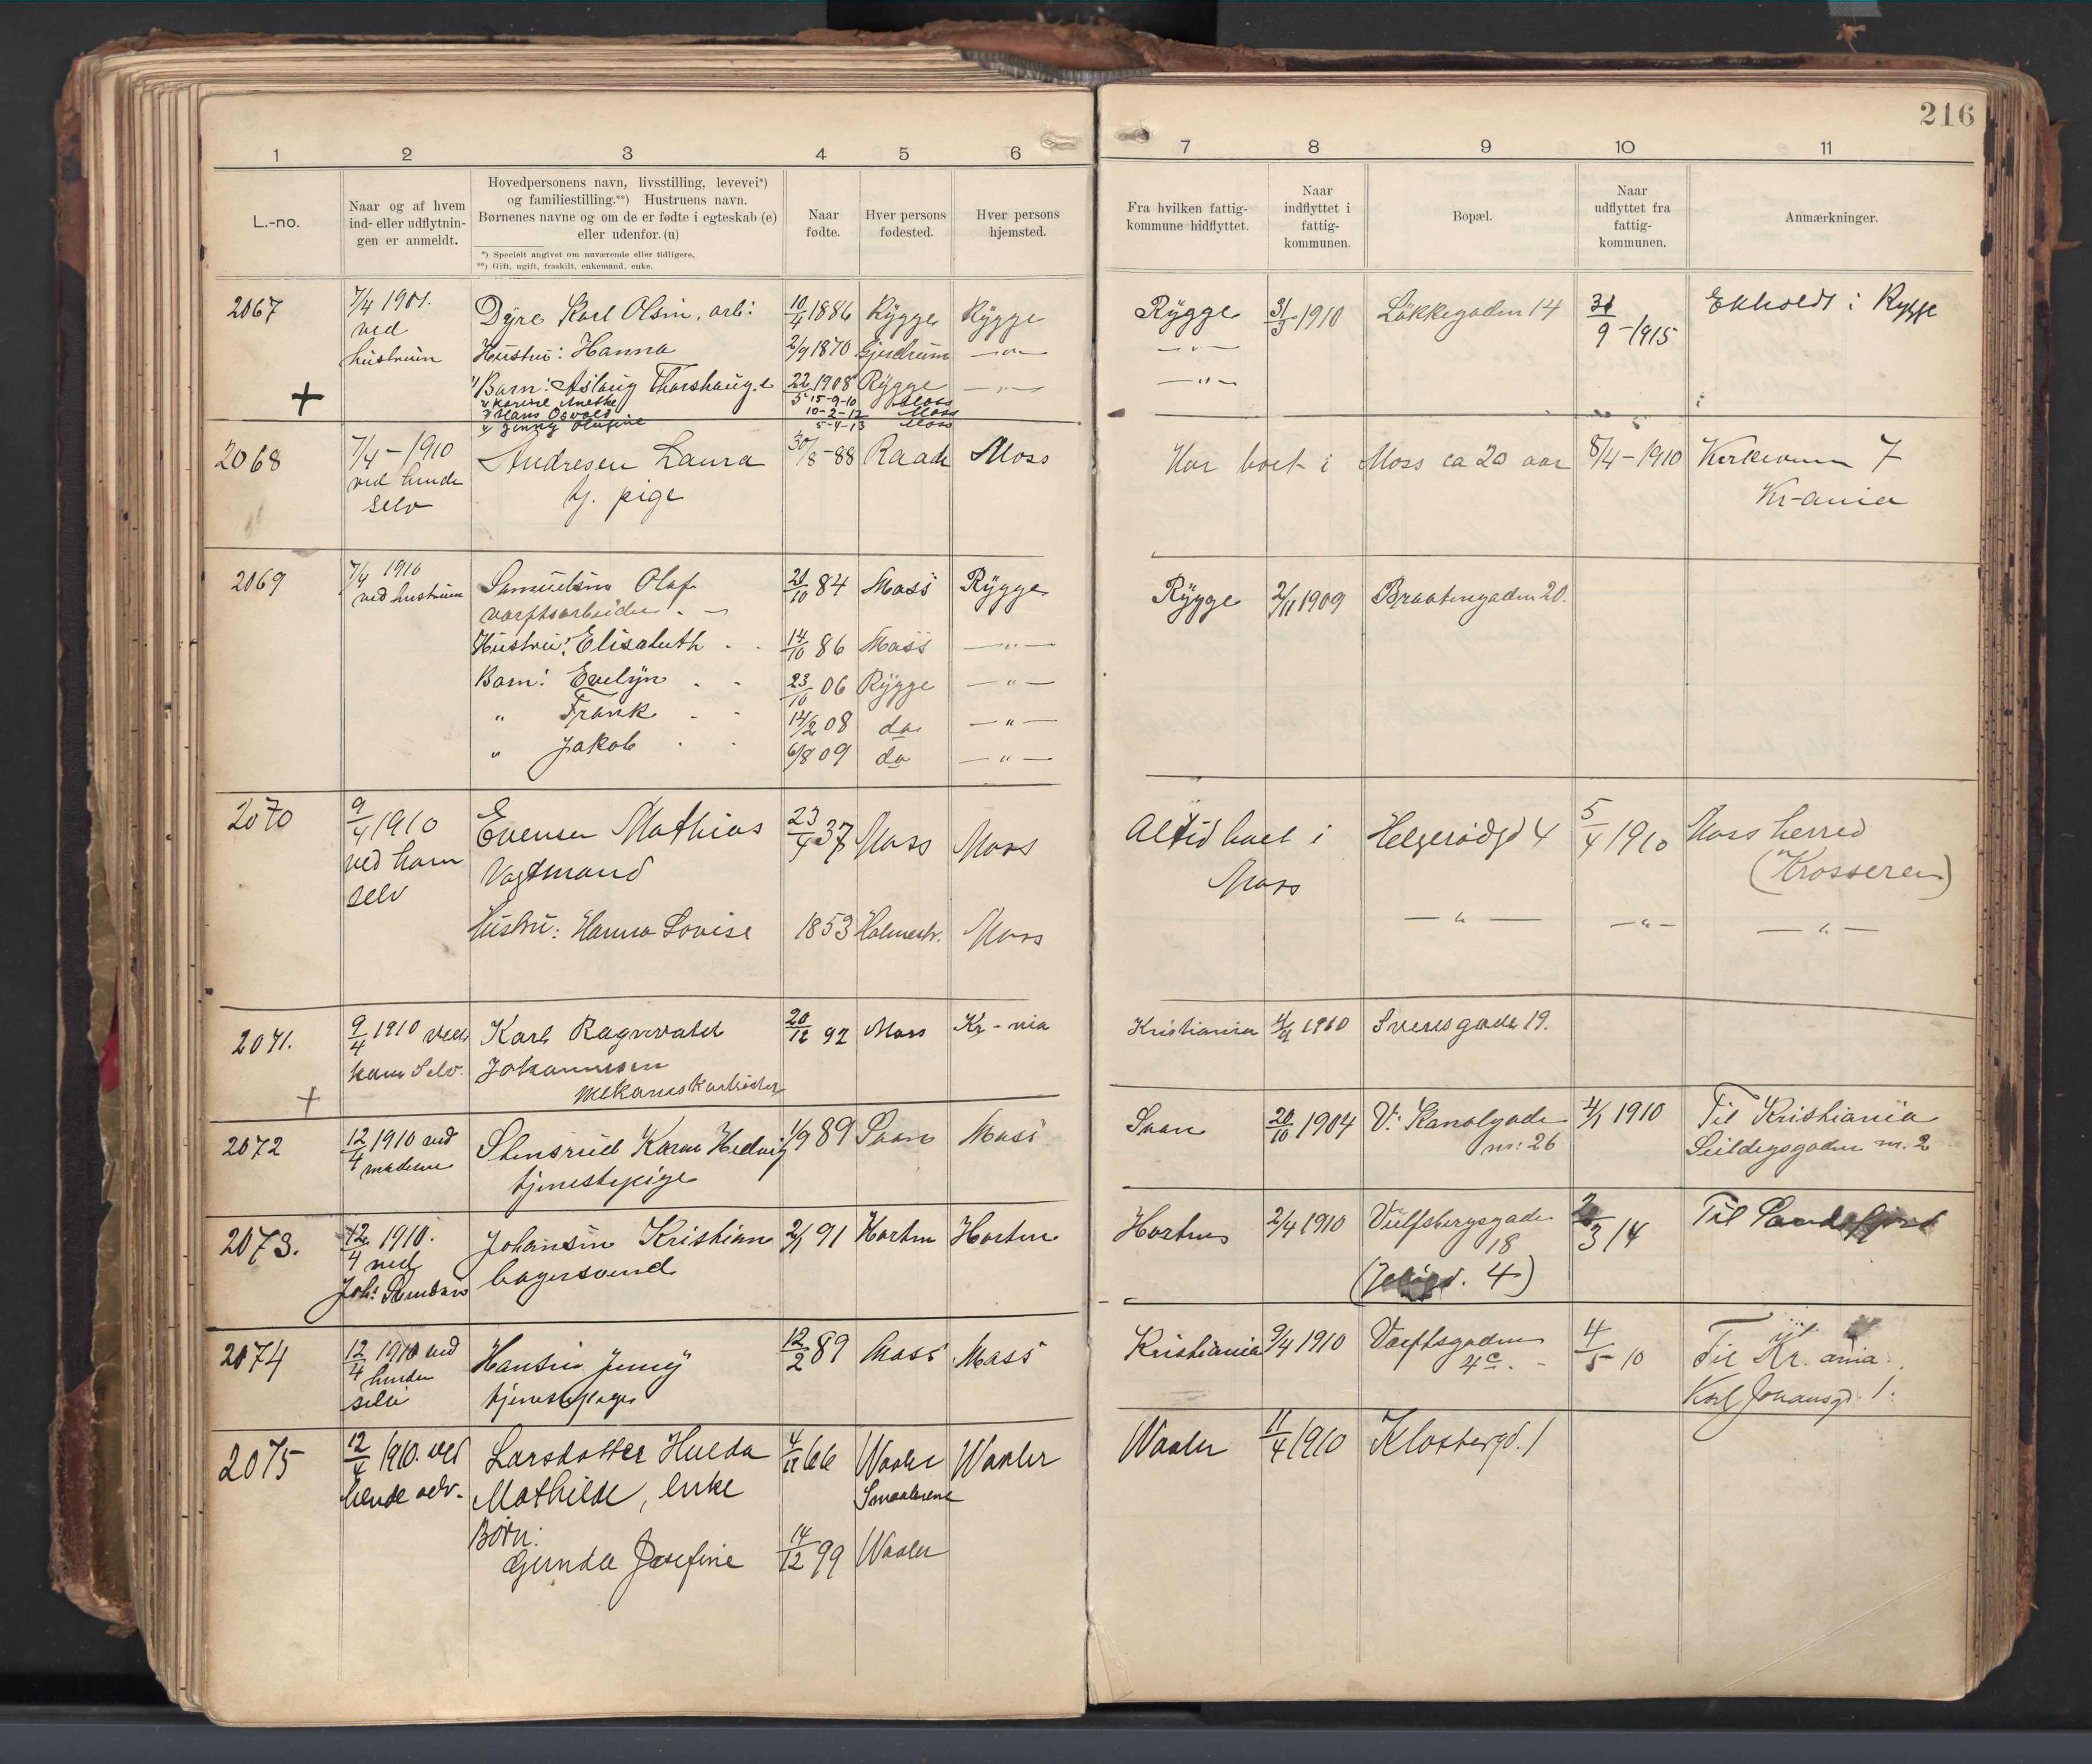 216
1 2 3 4 5 6 7 8 9 10 11
L.-no.
Naar og af hvem
ind- eller udflytnin-
gen er anmeldt.
Hovedpersonens navn, livsstilling, levevei*)
og familiestilling.**) Hustruens navn.
Børnenes navne og om de er fødte i egteskab (e)
eller udenfor. (u)
*) Specielt angivet om nuværende eller tidligere.
**) Gift, ugift, fraskilt, enkemand, enke.
Naar
fødte.
Hver persons
fødested.
Hver persons
hjemsted.
Fra hvilken fattig-
kommune hidflyttet.
Naar
indflyttet i
fattig-
kommunen.
Bopæl.
Naar
udflyttet fra
fattig-
kommunen.
Anmærkninger.
2067 7/4 Dyre Karl Olsen, arb: 10/4 1886 Rygge Rygge Rygge 31/3 1910 Løkkegaden 14 9-1915 Ekholdt i Rygge
ved
hustruen Hustru: Hanna 2/9 1870 Gjerdrum —"— —"—
+ 1) Barn: Aslaug Thorshaug. e 22/5 1908 Rygge —"— —"—
2) Karine Anethe 15-9-10 Moss
3) Hans Osvald 10-2-12 Moss
4) Jenny Olufine 5-4-13 Moss
2068 7/4-1910 Andresen Laura 30/8-88 Raade Moss Har boet i Moss ca 20 aar 8/4-1910 Kirkeveien 7
ved hende
selv tj. pige Kr-ania
2069 7/4 1910 Samuelsen Olaf 84 Moss Rygge Rygge 2/11 1909 Braatengaden 20.
ved hustruen
værftsarbeider
Hustru: Elisabeth 14/10 86 Moss —"—
Barn: Evelyn 23/10 06 Rygge —"—
" Frank 14/2 08 do —"—
" Jakob 6/8 09 do —"—
2070 9/4 1910 Evensen Mathias 23/4 37 Moss Moss Altid boet i Helgerødgd 4 5/4 1910 Moss herred
ved ham Vagtmand Moss (Krosseren)
selv
Hustru: Hanna Lovise 1853 Holmestr. Moss —"— —"— —"—
2071. 9/4 1910 ved Karl Ragnvald 20/12 92 Moss Kr-nia Kristiania 1910 Sverresgade 19.
ham Selv. Johannesen
+ mekanisk arbeider
2072 12/4 1910 ved Stensrud Karen Hedvig 1/9 89 Saan Moss Saan 20/10 1904 V: Kanalgade 1910 Til Kristiania
moderen nr: 26
tjenestepige
2073. 12/4 1910. Johansen Kristian 2/1 91 Horten Horten Horten 2/4 1910 Vulfsbergsgade 3/14 Til Sandefjord
ved 18
bagersvend
( 4)
2074 12/4 1910 ved Hansen Jenny 12/2 89 Moss Moss Kristiania 9/4 1910 Værftsgaden 4/5-10 Til Kr.ania.
hende 4c.
selv tjenestepige Karl Johansgd. 1.
2075 12/4 1910. ved Larsdatter Hulda 66 Waaler Waaler Waaler 11/4 1910 Klostergd. 1
hende selv. Mathilde, enke Smaalenene
Børn:
Gunda Josefine 14/12 99 Waaler